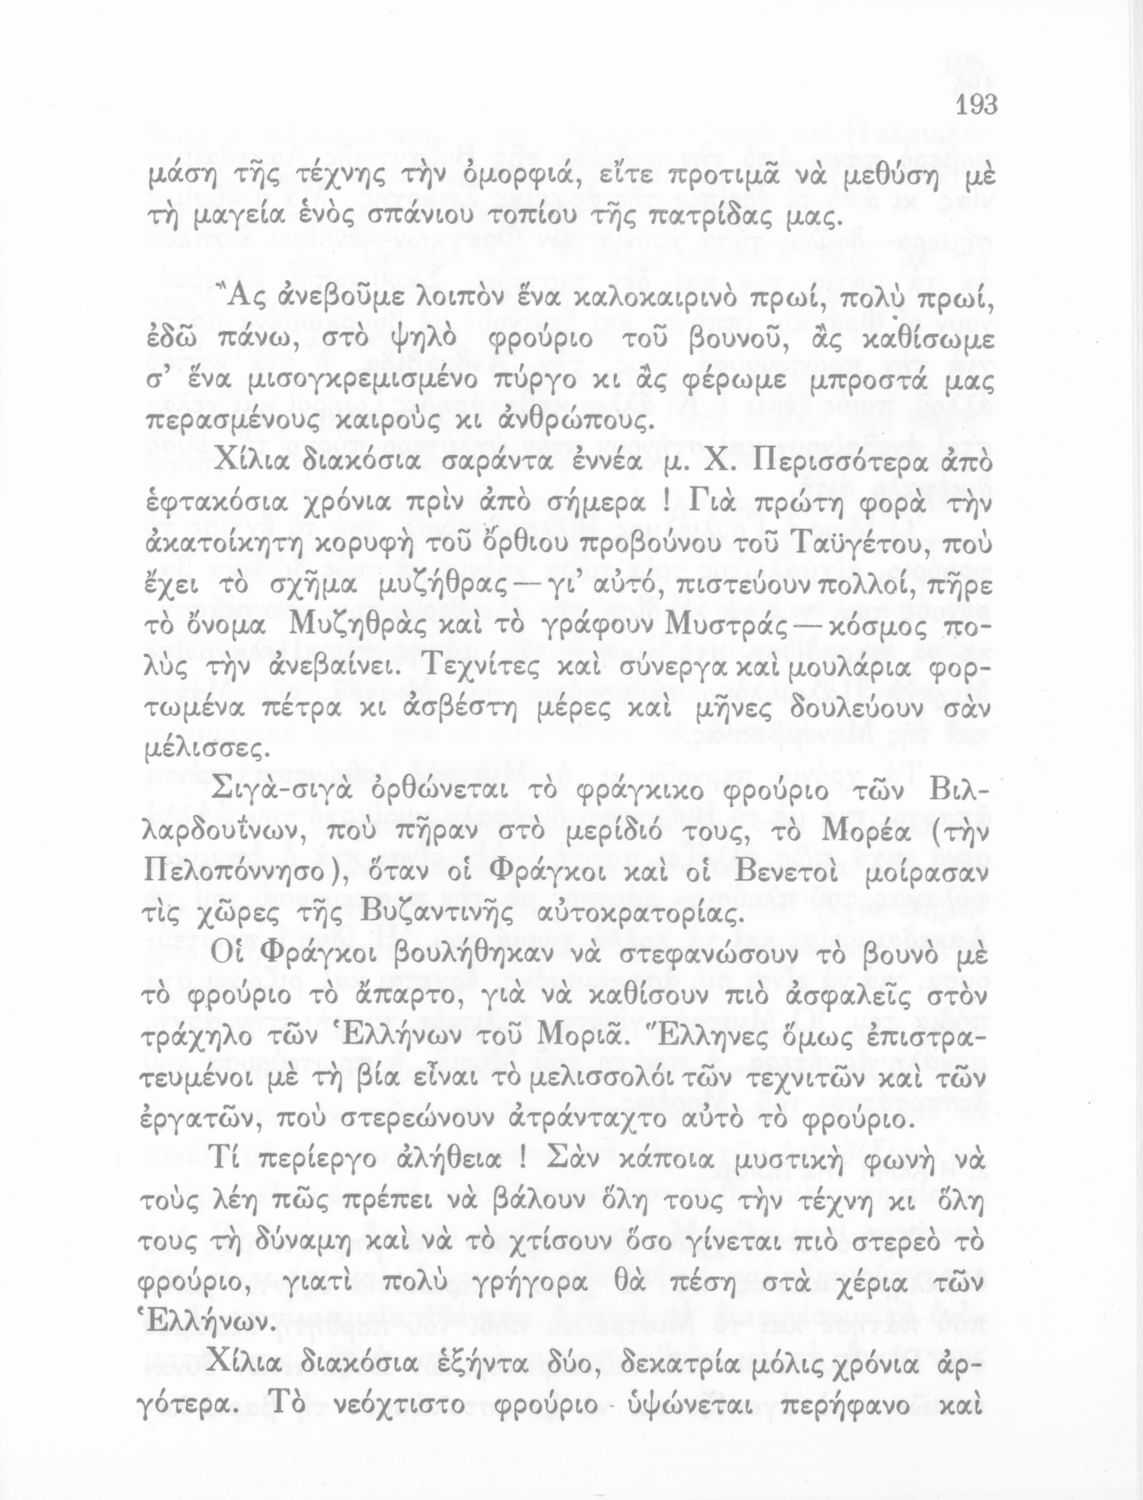 193
μάση τῆς τέχνης τὴν ὀμορφιά, εἴτε προτιμᾶ νὰ μεθύση μὲ
τὴ μαγεία ἑνὸς σπάνιου τοπίου τῆς πατρίδας μας.
Ἂς ἀνεβοῦμε λοιπὸν ἕνα καλοκαιρινὸ πρωί, πολὺ πρωί,
ἐδῶ πάνω, στὸ ψηλὸ φρούριο τοῦ βουνοῦ, ἂς καθίσωμε
σ’ ἕνα μισογκρεμισμένο πύργο κι ἂς φέρωμε μπροστά μας
περασμένους καιροὺς κι ἀνθρώπους.
Χίλια διακόσια σαράντα ἐννέα μ. Χ. Περισσότερα ἀπὸ
ἑφτακόσια χρόνια πρὶν ἀπὸ σήμερα ! Γιὰ πρώτη φορὰ τὴν
ἀκατοίκητη κορυφὴ τοῦ ὄρθιου προβούνου τοῦ Ταϋγέτου, ποὺ
ἔχει τὸ σχῆμα μυζήθρας — γι’ αὐτό, πιστεύουν πολλοί, πῆρε
τὸ ὄνομα Μυζηθρὰς καὶ τὸ γράφουν Μυστράς — κόσμος πο-
λὺς τὴν ἀνεβαίνει. Τεχνίτες καὶ σύνεργα καὶ μουλάρια φορ-
τωμένα πέτρα κι ἀσβέστη μέρες καὶ μῆνες δουλεύουν σὰν
μέλισσες.
Σιγὰ-σιγὰ ὀρθώνεται τὸ φράγκικο φρούριο τῶν Βιλ-
λαρδουΐνων, ποὺ πῆραν στὸ μερίδιό τους, τὸ Μορέα (τὴν
Πελοπόννησο), ὅταν οἱ Φράγκοι καὶ οἱ Βενετοὶ μοίρασαν
τὶς χῶρες τῆς Βυζαντινῆς αὐτοκρατορίας.
Οἱ Φράγκοι βουλήθηκαν νὰ στεφανώσουν τὸ βουνὸ μὲ
τὸ φρούριο τὸ ἄπαρτο, γιὰ νὰ καθίσουν πιὸ ἀσφαλεῖς στὸν
τράχηλο τῶν Ἑλλήνων τοῦ Μοριᾶ. Ἕλληνες ὅμως ἐπιστρα-
τευμένοι μὲ τὴ βία εἶναι τὸ μελισσολόι τῶν τεχνιτῶν καὶ τῶν
ἐργατῶν, ποὺ στερεώνουν ἀτράνταχτο αὐτὸ τὸ φρούριο.
Τί περίεργο ἀλήθεια ! Σὰν κάποια μυστικὴ φωνὴ νὰ
τοὺς λέη πῶς πρέπει νὰ βάλουν ὅλη τους τὴν τέχνη κι ὅλη
τους τὴ δύναμη καὶ νὰ τὸ χτίσουν ὅσο γίνεται πιὸ στερεὸ τὸ
φρούριο, γιατὶ πολὺ γρήγορα θὰ πέση στὰ χέρια τῶν
Ἑλλήνων.
Χίλια διακόσια ἑξήντα δύο, δεκατρία μόλις χρόνια ἀρ-
γότερα. Τὸ νεόχτιστο φρούριο ὑψώνεται περήφανο καὶ